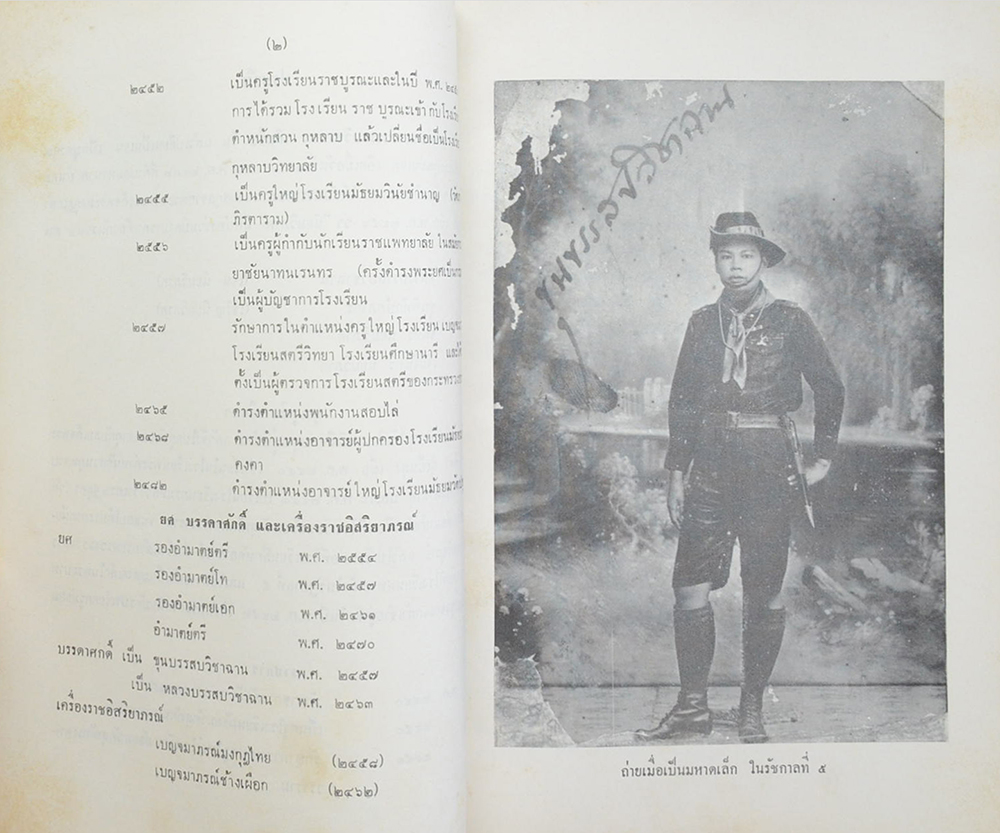 (๒)
๒๔๕๒ เป็นครูโรงเรียนราชบูรณะและในปี พ.ศ.
การได้รวม โรงเรียน ราช บูรณะเข้า กับโรงเรี
ตำหนักสวน กุหลาบ แล้วเปลี่ยนชื่อเป็นโรงเรี
กุหลาบวิทยาลัย
๒๔๕๕ เป็นครูใหญ่โรงเรียนมัธยมวินัยชำนาญ
ภิรตาราม)
๒๕๕๖ เป็นครูผู้กำกับนักเรียนราชแพทยาลัย
ยาชัยนาทนเรนทร (ครั้งดำรงพระยศเป็น
เป็นผู้บัญชาการโรงเรียน
๒๔๕๗ รักษาการในตำแหน่งครูใหญ่โรงเรียน
โรงเรียนสตรีวิทยา โรงเรียนศึกษานารี
ตั้งเป็นผู้ตรวจการโรงเรียนสตรีของกระทรวง
๒๔๖๕ ดำรงตำแหน่งพนักงานสอบไล่
๒๔๖๘ ดำรงตำแหน่งอาจารย์ผู้ปกครองโรงเรียนมัธยม
คงคา
๒๔๘๒ ดำรงตำแหน่งอาจารย์ใหญ่โรงเรียนมัธยม
ยศ บรรดาศักดิ์ และเครื่องราชอิสริยาภรณ์
ยศ รองอำมาตย์ตรี พ.ศ. ๒๕๕๔
รองอำมาตย์โท พ.ศ. ๒๔๕๗
รองอำมาตย์เอก พ.ศ. ๒๔๖๑
อำมาตย์ตรี พ.ศ. ๒๔๗๐
บรรดาศกดิ์ เป็น ขุนบรรสบวิชาฉาน พ.ศ. ๒๔๕๗
เป็น หลวงบรรสบวิชาฉาน พ.ศ. ๒๔๖๓
เครื่องราชอิสริยาภรณ์
เบญจมาภรณ์มงกุฎไทย (๒๔๕๘)
เบญจมาภรณ์ช้างเผือก (๒๔๖๒)
ถ่ายเมื่อเป็นมหาดเล็ก ในรัชกาลที่ ๕